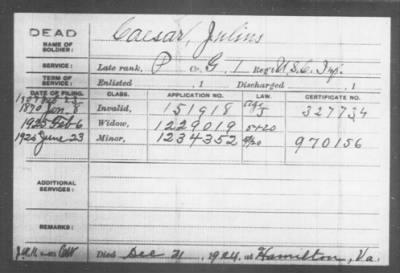 DEAD
NAME OF SOLDIER:
Caesar, Julius
SERVICE:
Late rank, P Co. G, 1 Reg't U.S.C. Inf.
TERM OF SERVICE:
Enlisted , 1 Discharged , 1
DATE OF FILING. CLASS. APPLICATION NO. LAW. CERTIFICATE NO.
1870 Jan. 8 Invalid, 151918 327734
1925 Feb 6 Widow, 1229019 5+20
1926 June 23 Minor, 1234352 5/20 970156
ADDITIONAL SERVICES:
REMARKS:
Died Dec 21, 1924, at Hamilton, Va.